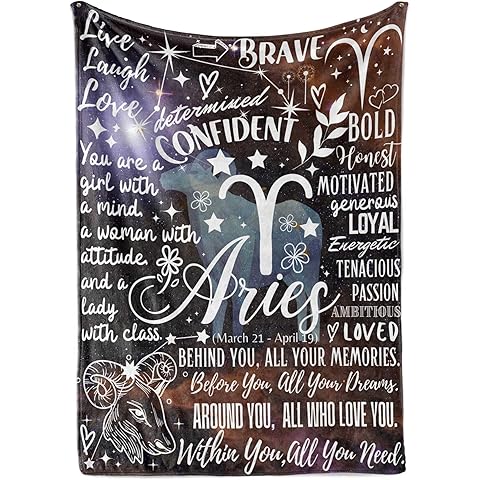 Live
Laugh
Love
BRAVE
determined
CONFIDENT
BOLD
Honest
MOTIVATED
generous
LOYAL
Energetic
TENACIOUS
PASSION
AMBITIOUS
LOVED
You are a
girl with
a mind,
a woman with
attitude,
and a
lady
with class.
Aries
(March 21 - April 19)
BEHIND YOU, ALL YOUR MEMORIES.
Before You, All Your Dreams.
AROUND YOU, ALL WHO LOVE YOU.
Within You, All You Need.